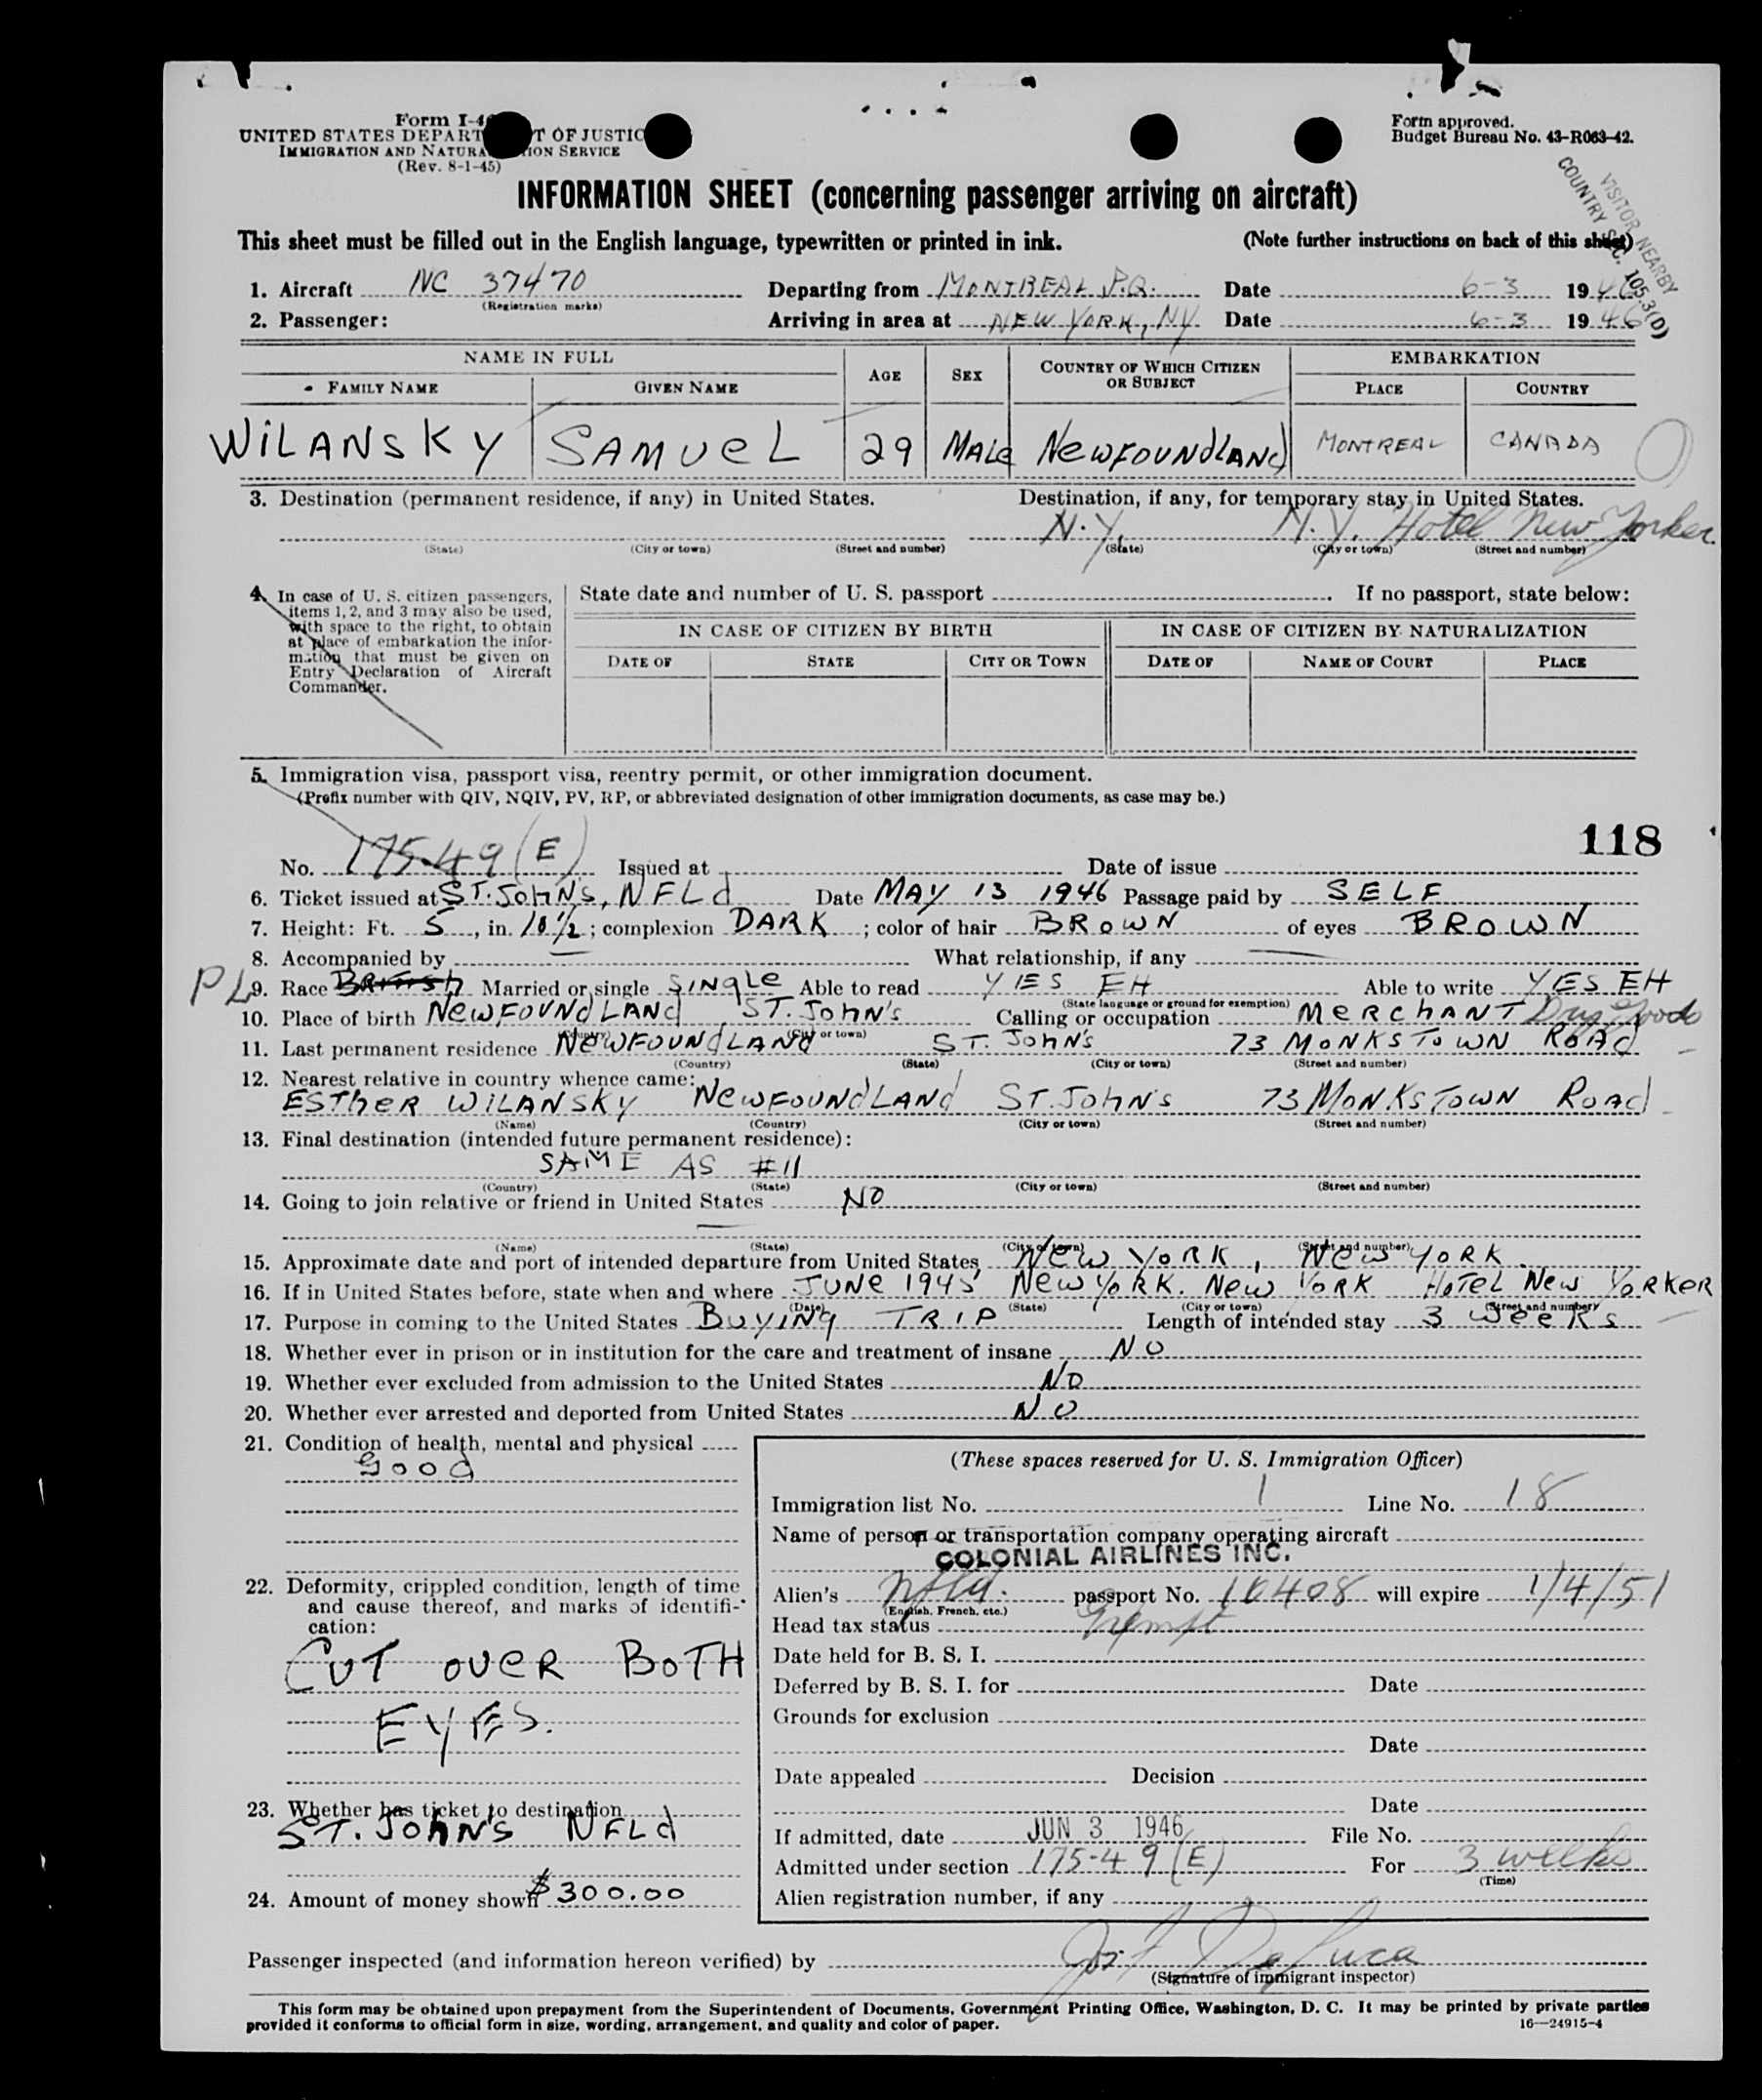 Form I-4
UNITED STATES DEPARTMENT OF JUSTICE
IMMIGRATION AND NATURALIZATION SERVICE
(Rev. 8-1-45)
Form approved.
Budget Bureau No. 43-R063-42.
VISITOR NEARBY
COUNTRY SEC. 105.3(D)
INFORMATION SHEET (concerning passenger arriving on aircraft)
This sheet must be filled out in the English language, typewritten or printed in ink. (Note further instructions on back of this sheet)
1. Aircraft NC 37470 Departing from MONTREAL P.Q. Date 6-3 1946
(Registration marks)
2. Passenger: Arriving in area at NEW YORK, NY Date 6-3 1946
NAME IN FULL AGE SEX COUNTRY OF WHICH CITIZEN OR SUBJECT EMBARKATION
FAMILY NAME GIVEN NAME PLACE COUNTRY
WiLANSKY SAMUeL 29 MALe NewFOUNdLANd MONTREAL CANADA
3. Destination (permanent residence, if any) in United States. Destination, if any, for temporary stay in United States.
N.Y. N.Y. Hotel New Yorker
(State) (City or town) (Street and number) (State) (City or town) (Street and number)
4. In case of U. S. citizen passengers, items 1, 2, and 3 may also be used, with space to the right, to obtain at place of embarkation the information that must be given on Entry Declaration of Aircraft Commander.
State date and number of U. S. passport If no passport, state below:
IN CASE OF CITIZEN BY BIRTH IN CASE OF CITIZEN BY NATURALIZATION
DATE OF STATE CITY OR TOWN DATE OF NAME OF COURT PLACE
5. Immigration visa, passport visa, reentry permit, or other immigration document.
(Prefix number with QIV, NQIV, PV, RP, or abbreviated designation of other immigration documents, as case may be.)
118
No. 175-49 (E) Issued at Date of issue
6. Ticket issued at ST. JOHN'S, NFLd Date MAY 13 1946 Passage paid by SELF
7. Height: Ft. 5, in. 10 1/2; complexion DARK; color of hair BROWN of eyes BROWN
8. Accompanied by What relationship, if any
PL 9. Race British Married or single SiNgLe Able to read YES EH Able to write YES EH
(State language or ground for exemption)
10. Place of birth NewFOUNdLANd ST. JOhN's Calling or occupation MeRChANT Dry Goods
(Country) (City or town)
11. Last permanent residence NewFOUNdLANd ST. JOhN's 73 MONKSTOWN ROAd
(Country) (State) (City or town) (Street and number)
12. Nearest relative in country whence came:
ESTheR WiLANSKY NewFOUNdLANd ST. JOhN's 73 MONKSTOWN ROAd
(Name) (Country) (City or town) (Street and number)
13. Final destination (intended future permanent residence):
SAME AS #11
(Country) (State) (City or town) (Street and number)
14. Going to join relative or friend in United States NO
(Name) (State) (City or town) (Street and number)
15. Approximate date and port of intended departure from United States New YORK, New YORK
16. If in United States before, state when and where JUNe 1945 New YORK. New YORK HOTeL New YORKeR
(Date) (State) (City or town) (Street and number)
17. Purpose in coming to the United States BUYiNg TRIP Length of intended stay 3 weeKs
18. Whether ever in prison or in institution for the care and treatment of insane NO
19. Whether ever excluded from admission to the United States NO
20. Whether ever arrested and deported from United States NO
21. Condition of health, mental and physical
good
22. Deformity, crippled condition, length of time and cause thereof, and marks of identification:
CUT OVeR BOTH
EYES.
23. Whether has ticket to destination
ST. JOhN's NFLd
24. Amount of money shown $300.00
(These spaces reserved for U. S. Immigration Officer)
Immigration list No. 1 Line No. 18
Name of person or transportation company operating aircraft
COLONIAL AIRLINES INC.
Alien's Nfld. passport No. 10408 will expire 1/4/51
(English, French, etc.)
Head tax status Exempt
Date held for B. S. I.
Deferred by B. S. I. for Date
Grounds for exclusion
Date
Date appealed Decision
Date
If admitted, date JUN 3 1946 File No.
Admitted under section 175-49 (E) For 3 weeks
(Time)
Alien registration number, if any
Passenger inspected (and information hereon verified) by Jos F DeLuca
(Signature of immigrant inspector)
This form may be obtained upon prepayment from the Superintendent of Documents, Government Printing Office, Washington, D. C. It may be printed by private parties
provided it conforms to official form in size, wording, arrangement, and quality and color of paper. 16—24915-4